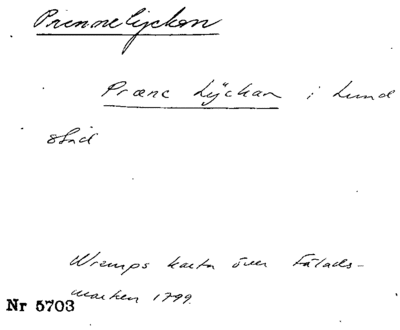 Prennelyckan
Præne Lÿckan i Lund
stad
Wramps karta över Fälads-
marken 1799.
Nr 5703